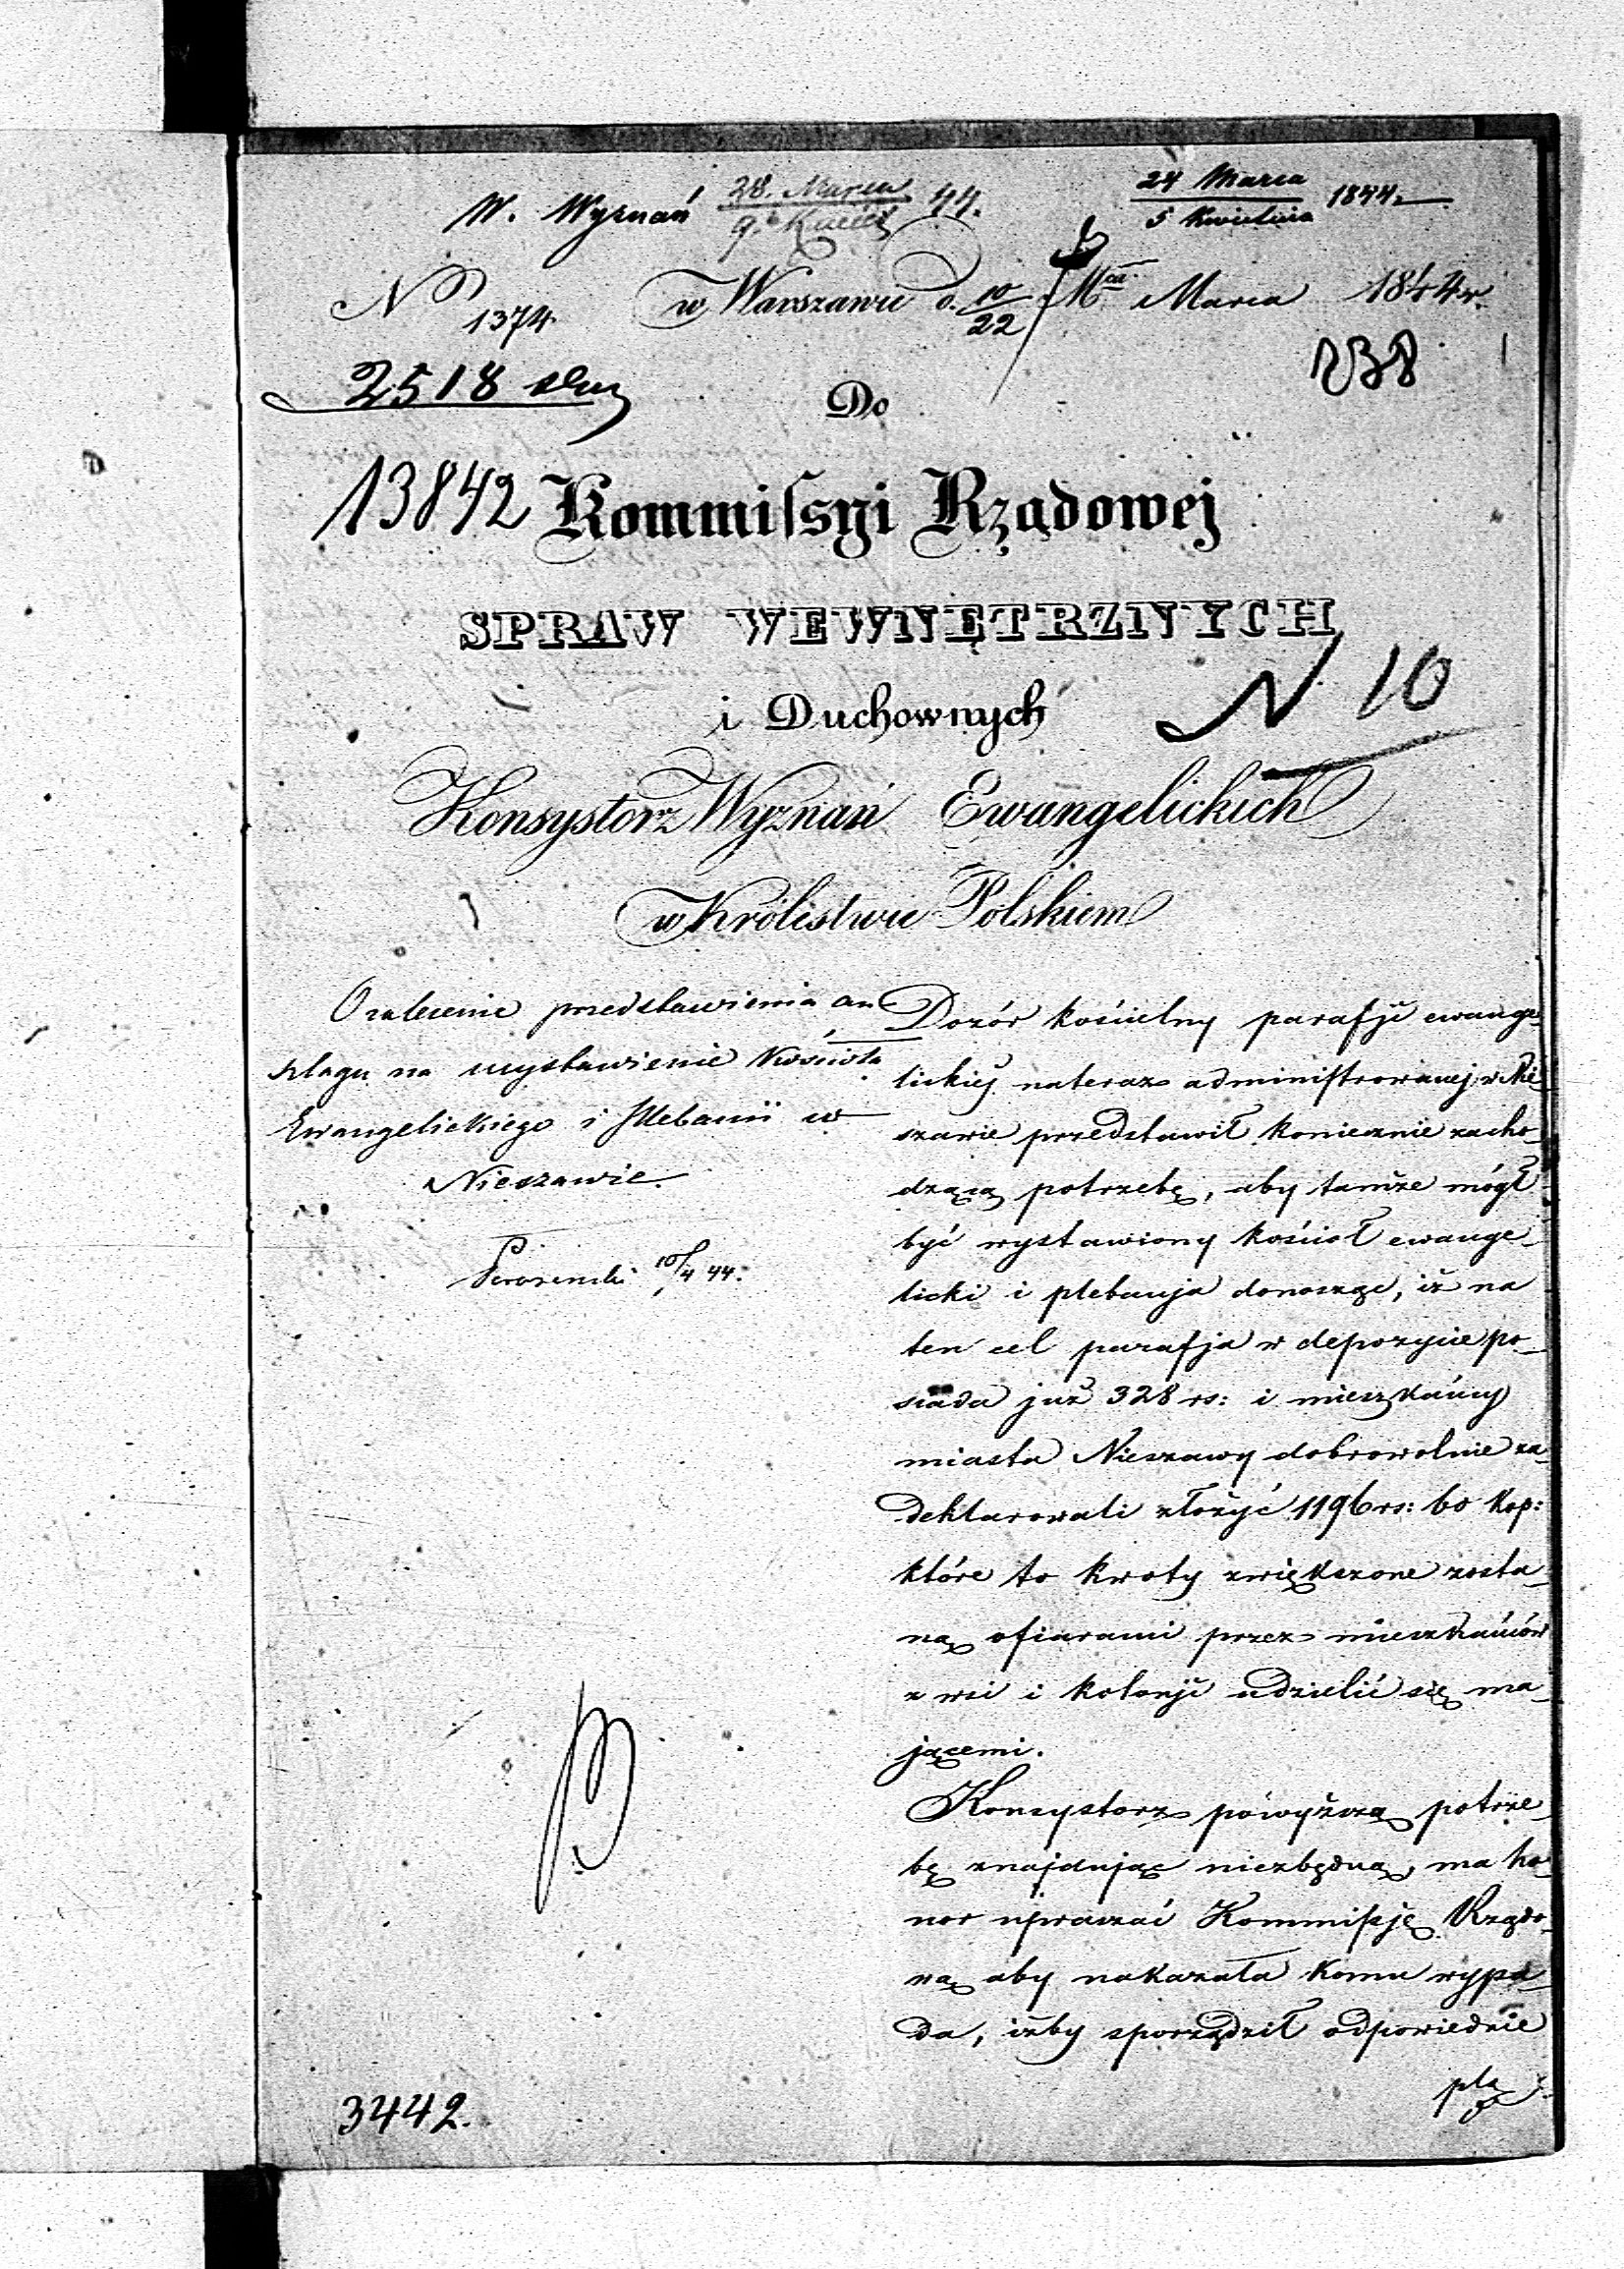 W. Wyznań 28. Marca 44.
24 Marca
5 Kwietnia 1844.
No 1374. w Warszawie d. 10/22 Mca Marca 1844 r.
2518
Do
13842 Kommiſsyi Rządowej
SPRAW WEWNĘTRZNYCH
i Duchownych
N. 10
Konsystorz Wyznań Ewangelickich
w Królestwie Polskiem
O zalecenie przedstawienia an
szlagu na wystawienie Kościoła
Ewangelickiego i Plebanii w
Nieszawie.
10/4 44.
Dozór kościelny parafji ewange-
lickiej nateraz administrowanej w Nie
szawie przedstawił koniecznie zacho-
dzącą potrzebę, aby tamże mógł
być wystawiony kościoł ewange-
licki i plebanja donosząc, iż na
ten cel parafja w depozycie po-
siada już 328 rs: i mieszkańcy
miasta Nieszawy dobrowolnie za-
deklarowali złożyć 1196 rs: 60 kop:
które to kwoty zwiększone zosta-
ną ofiarami przez mieszkańców
z wsi i kolonji udzielić się ma-
jącemi.
Konsystorz powyższą potrze-
bę znajdując niezbędną, ma ho-
nor upraszać Kommiſsję Rządo-
wą aby nakazała komu wypa-
da, iżby sporządził odpowiednie
3442.